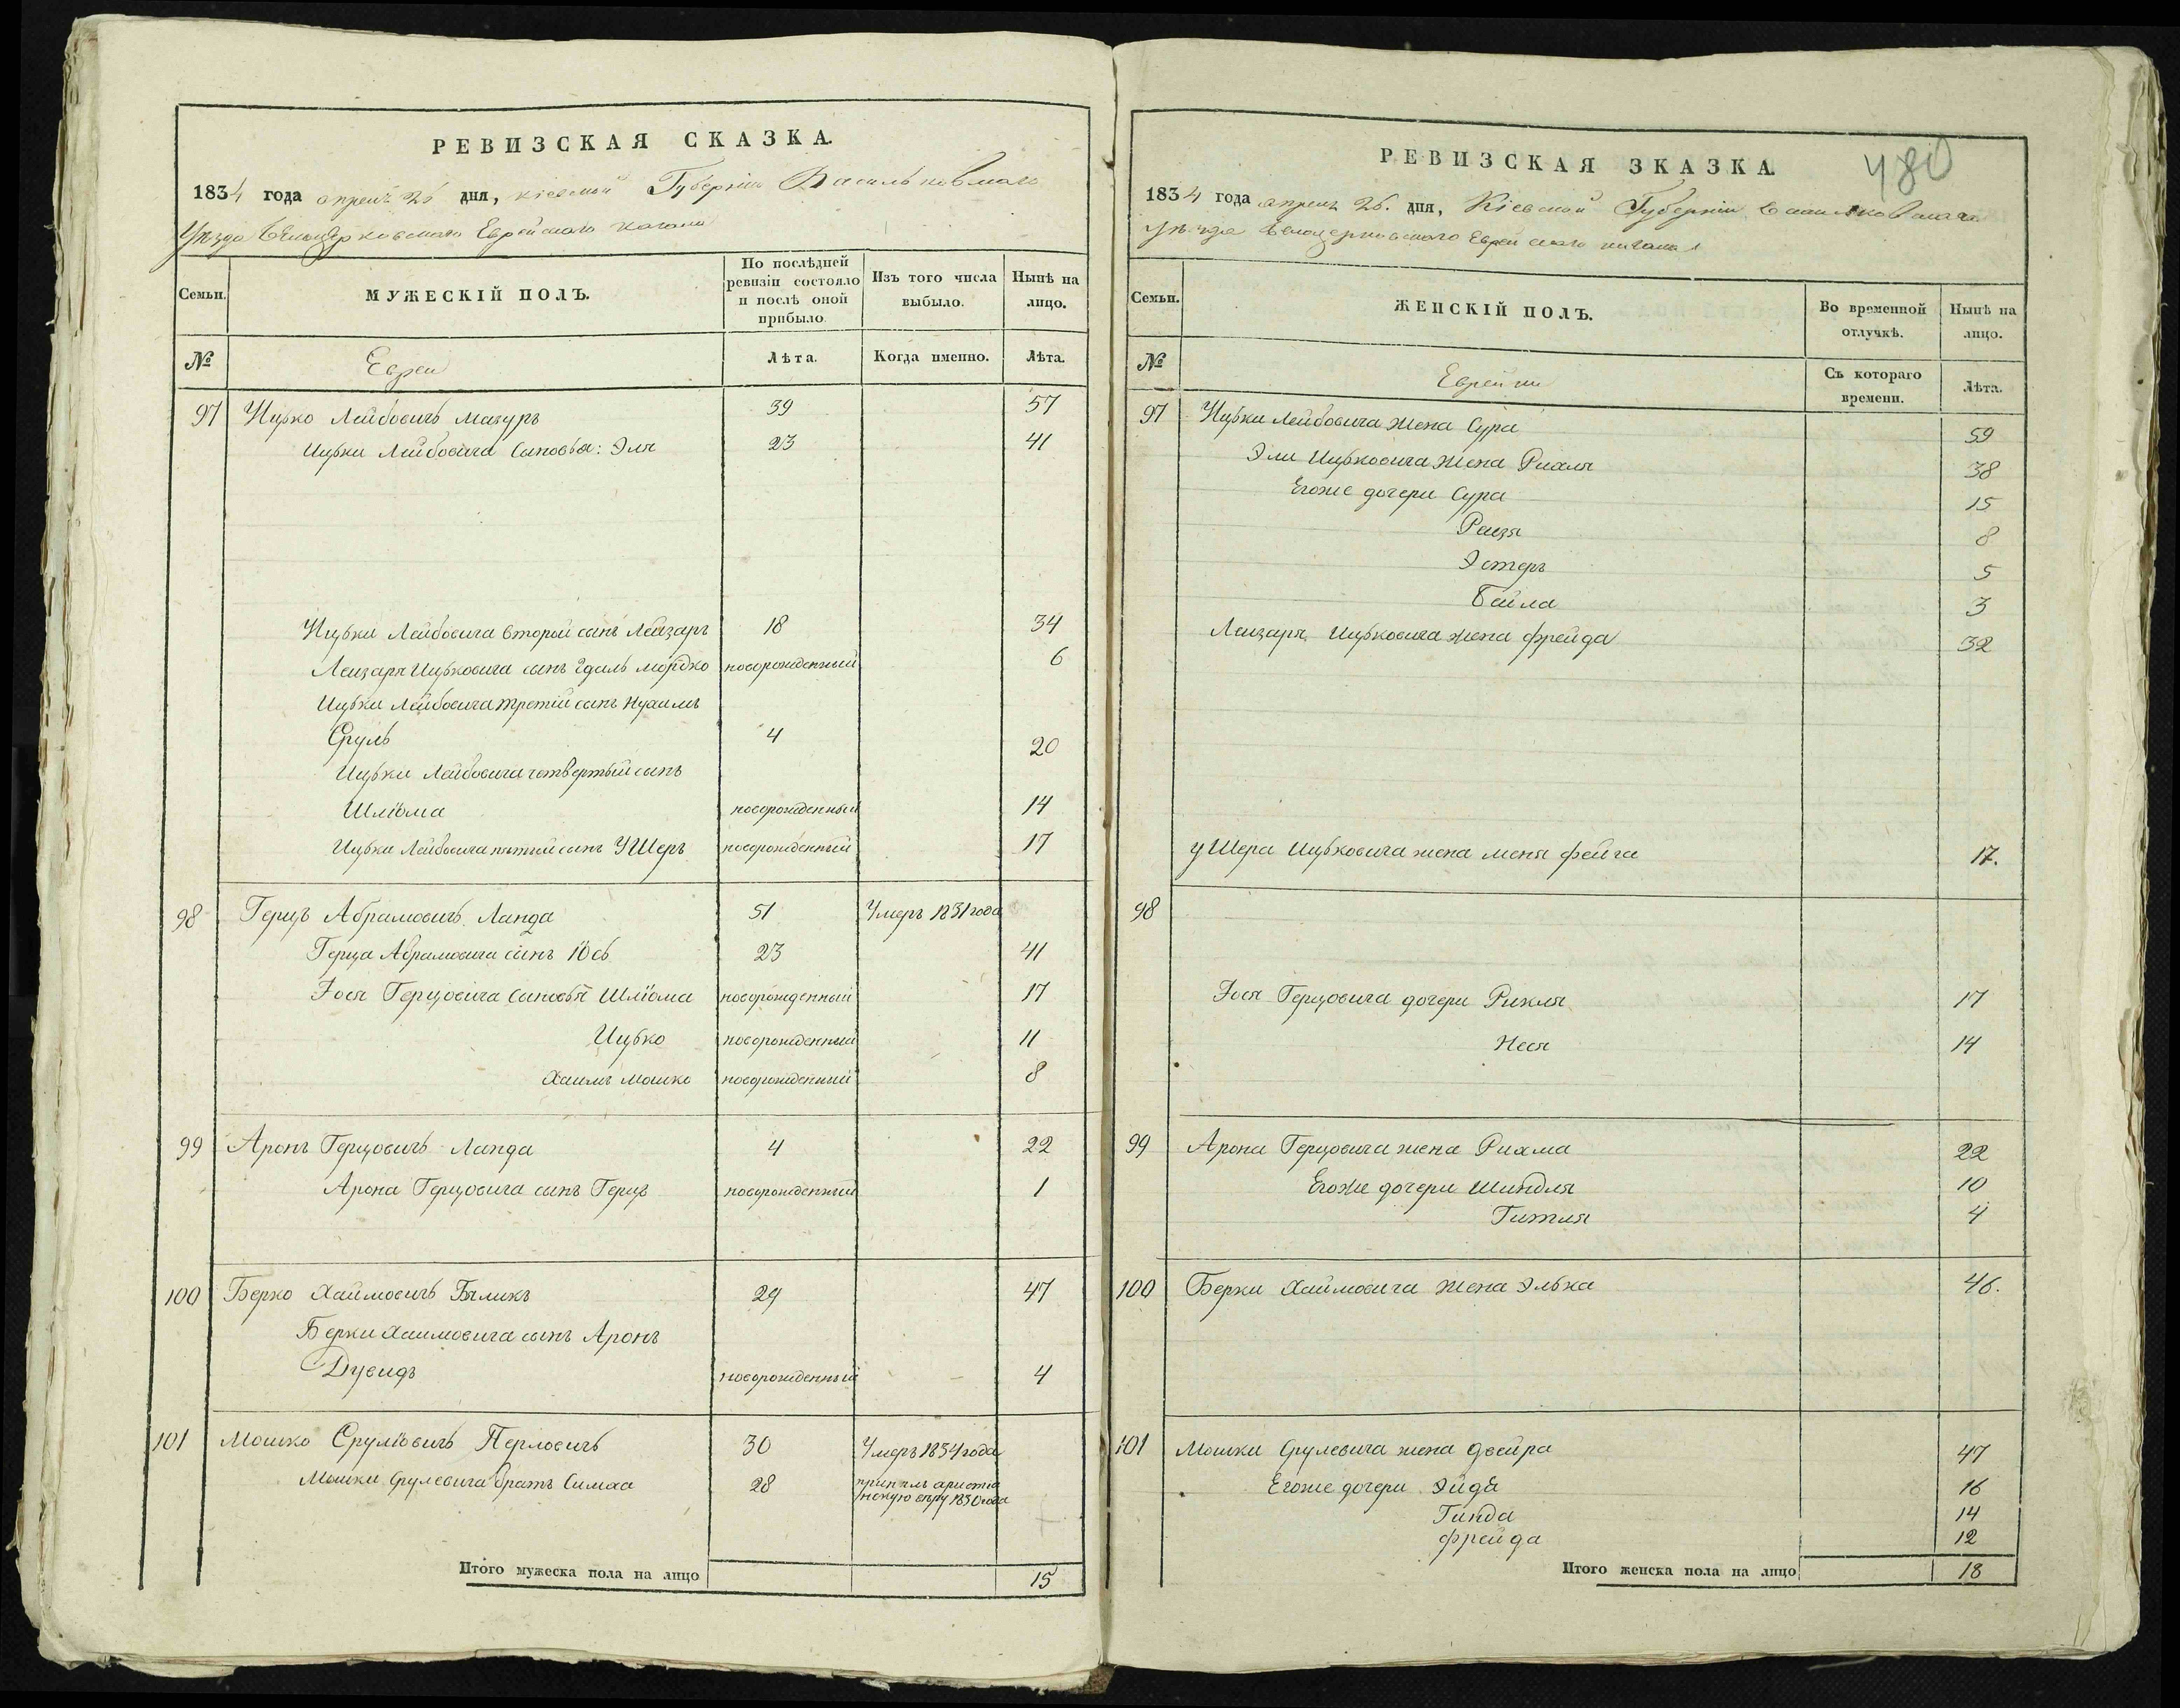 РЕВИЗСКАЯ СКАЗКА.
1834 года апреля 26 дня, кіевской Губерніи Васильковскаго
Уезда Белоцерковскаго Еврейскаго Кагала
Семьи.
МУЖЕСКІЙ ПОЛЪ.
По послѣдней ревизіи состояло и послѣ оной прибыло.
Изъ того числа выбыло.
Нынѣ на лицо.
№
Евреи
Лѣта.
Когда именно.
Лѣта.
97 Ицько Лейбовичъ Мазуръ 39 57
Ицьки Лейбовича Сыновья: Эля 23 41
Ицьки Лейбовича второй сынъ Лейзаръ 18 34
Лейзаря Ицьковича сынъ Эдаль Мордко новорожденный 6
Ицьки Лейбовича третій сынъ Нухимъ
Сруль 4 20
Ицьки Лейбовича четвертый сынъ
Шліома новорожденный 14
Ицьки Лейбовича пятый сынъ УШеръ новорожденный 17
98 Герцъ Абрамовичъ Ланда 51 Умеръ 1831 года
Герца Абрамовича сынъ Іось 23 41
Іося Герцовича Сыновья Шліома новорожденный 17
Ицько новорожденный 11
Хаимъ Мошко новорожденный 8
99 Аронъ Герцовичъ Ланда 4 22
Арона Герцовича сынъ Герцъ новорожденный 1
100 Берко Хаймовичъ Бѣликъ 29 47
Берки Хаимовича сынъ Аронъ
Дувидъ новорожденный 4
101 Мошко Сруліовичъ Перловичъ 30 Умеръ 1834 года
Мошки Срулевича братъ Симха 28 принялъ христіа
нскую вѣру 1830 года
Итого мужеска пола на лицо 15
РЕВИЗСКАЯ ЗКАЗКА.
480
1834 года апреля 26. дня, Кіевской Губерніи Васильковскаго
Уѣзда Белоцерковскаго Еврейскаго кагала
Семьи.
ЖЕНСКІЙ ПОЛЪ.
Во временной отлучкѣ.
Нынѣ на лицо.
№
Еврейки
Съ котораго времени.
Лѣта.
97 Ицьки Лейбовича Жена Сура 59
Эли Ицьковича Жена Рихля 38
Егоже дочери Сура 15
Рейзя 8
Эстеръ 5
Бейла 3
Лейзаря Ицьковича Жена фрейда 32
уШера Ицьковича жена меня фейга 17.
98
Іося Герцовича дочери Рикля 17
Неся 14
99 Арона Герцовича жена Рихма 22
Егоже дочери Шиндля 10
Гитля 4
100 Берки Хаймовича Жена Элька 46.
101 Мошки Срулевича жена двейра 47
Егоже дочери Эйдя 16
Гинда 14
фрейда 12
Итого женска пола на лицо 18